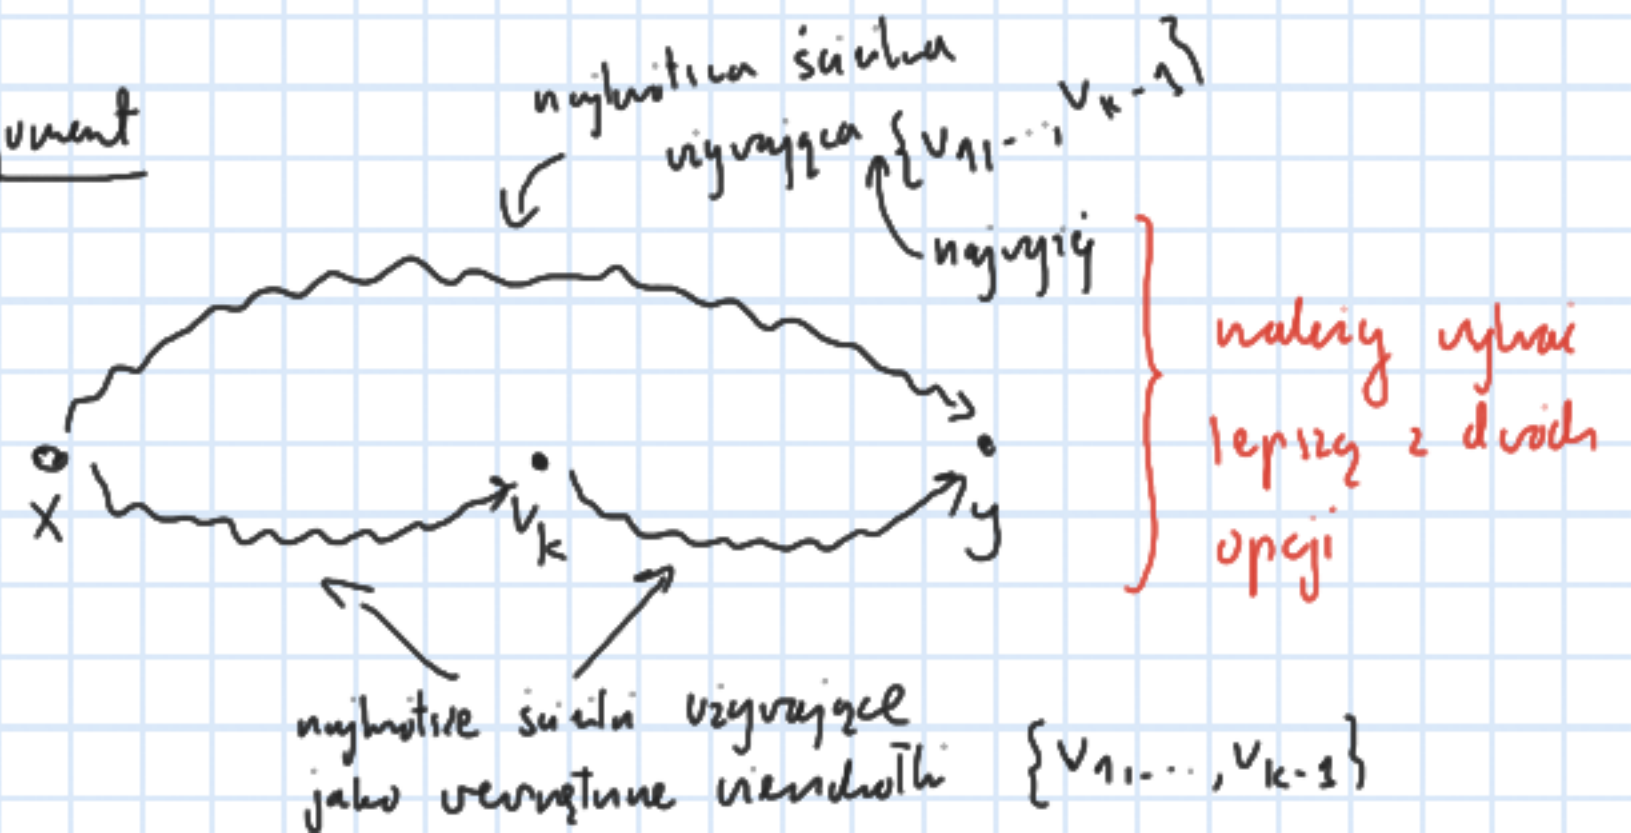 ument
najkrótsza ścieżka
używająca {v₁,...,vₖ₋₁}
najwyżej
należy wybrać
lepszą z dwóch
opcji
x
vₖ
y
najkrótsze ścieżki używające
jako wewnętrzne wierzchołki {v₁,...,vₖ₋₁}